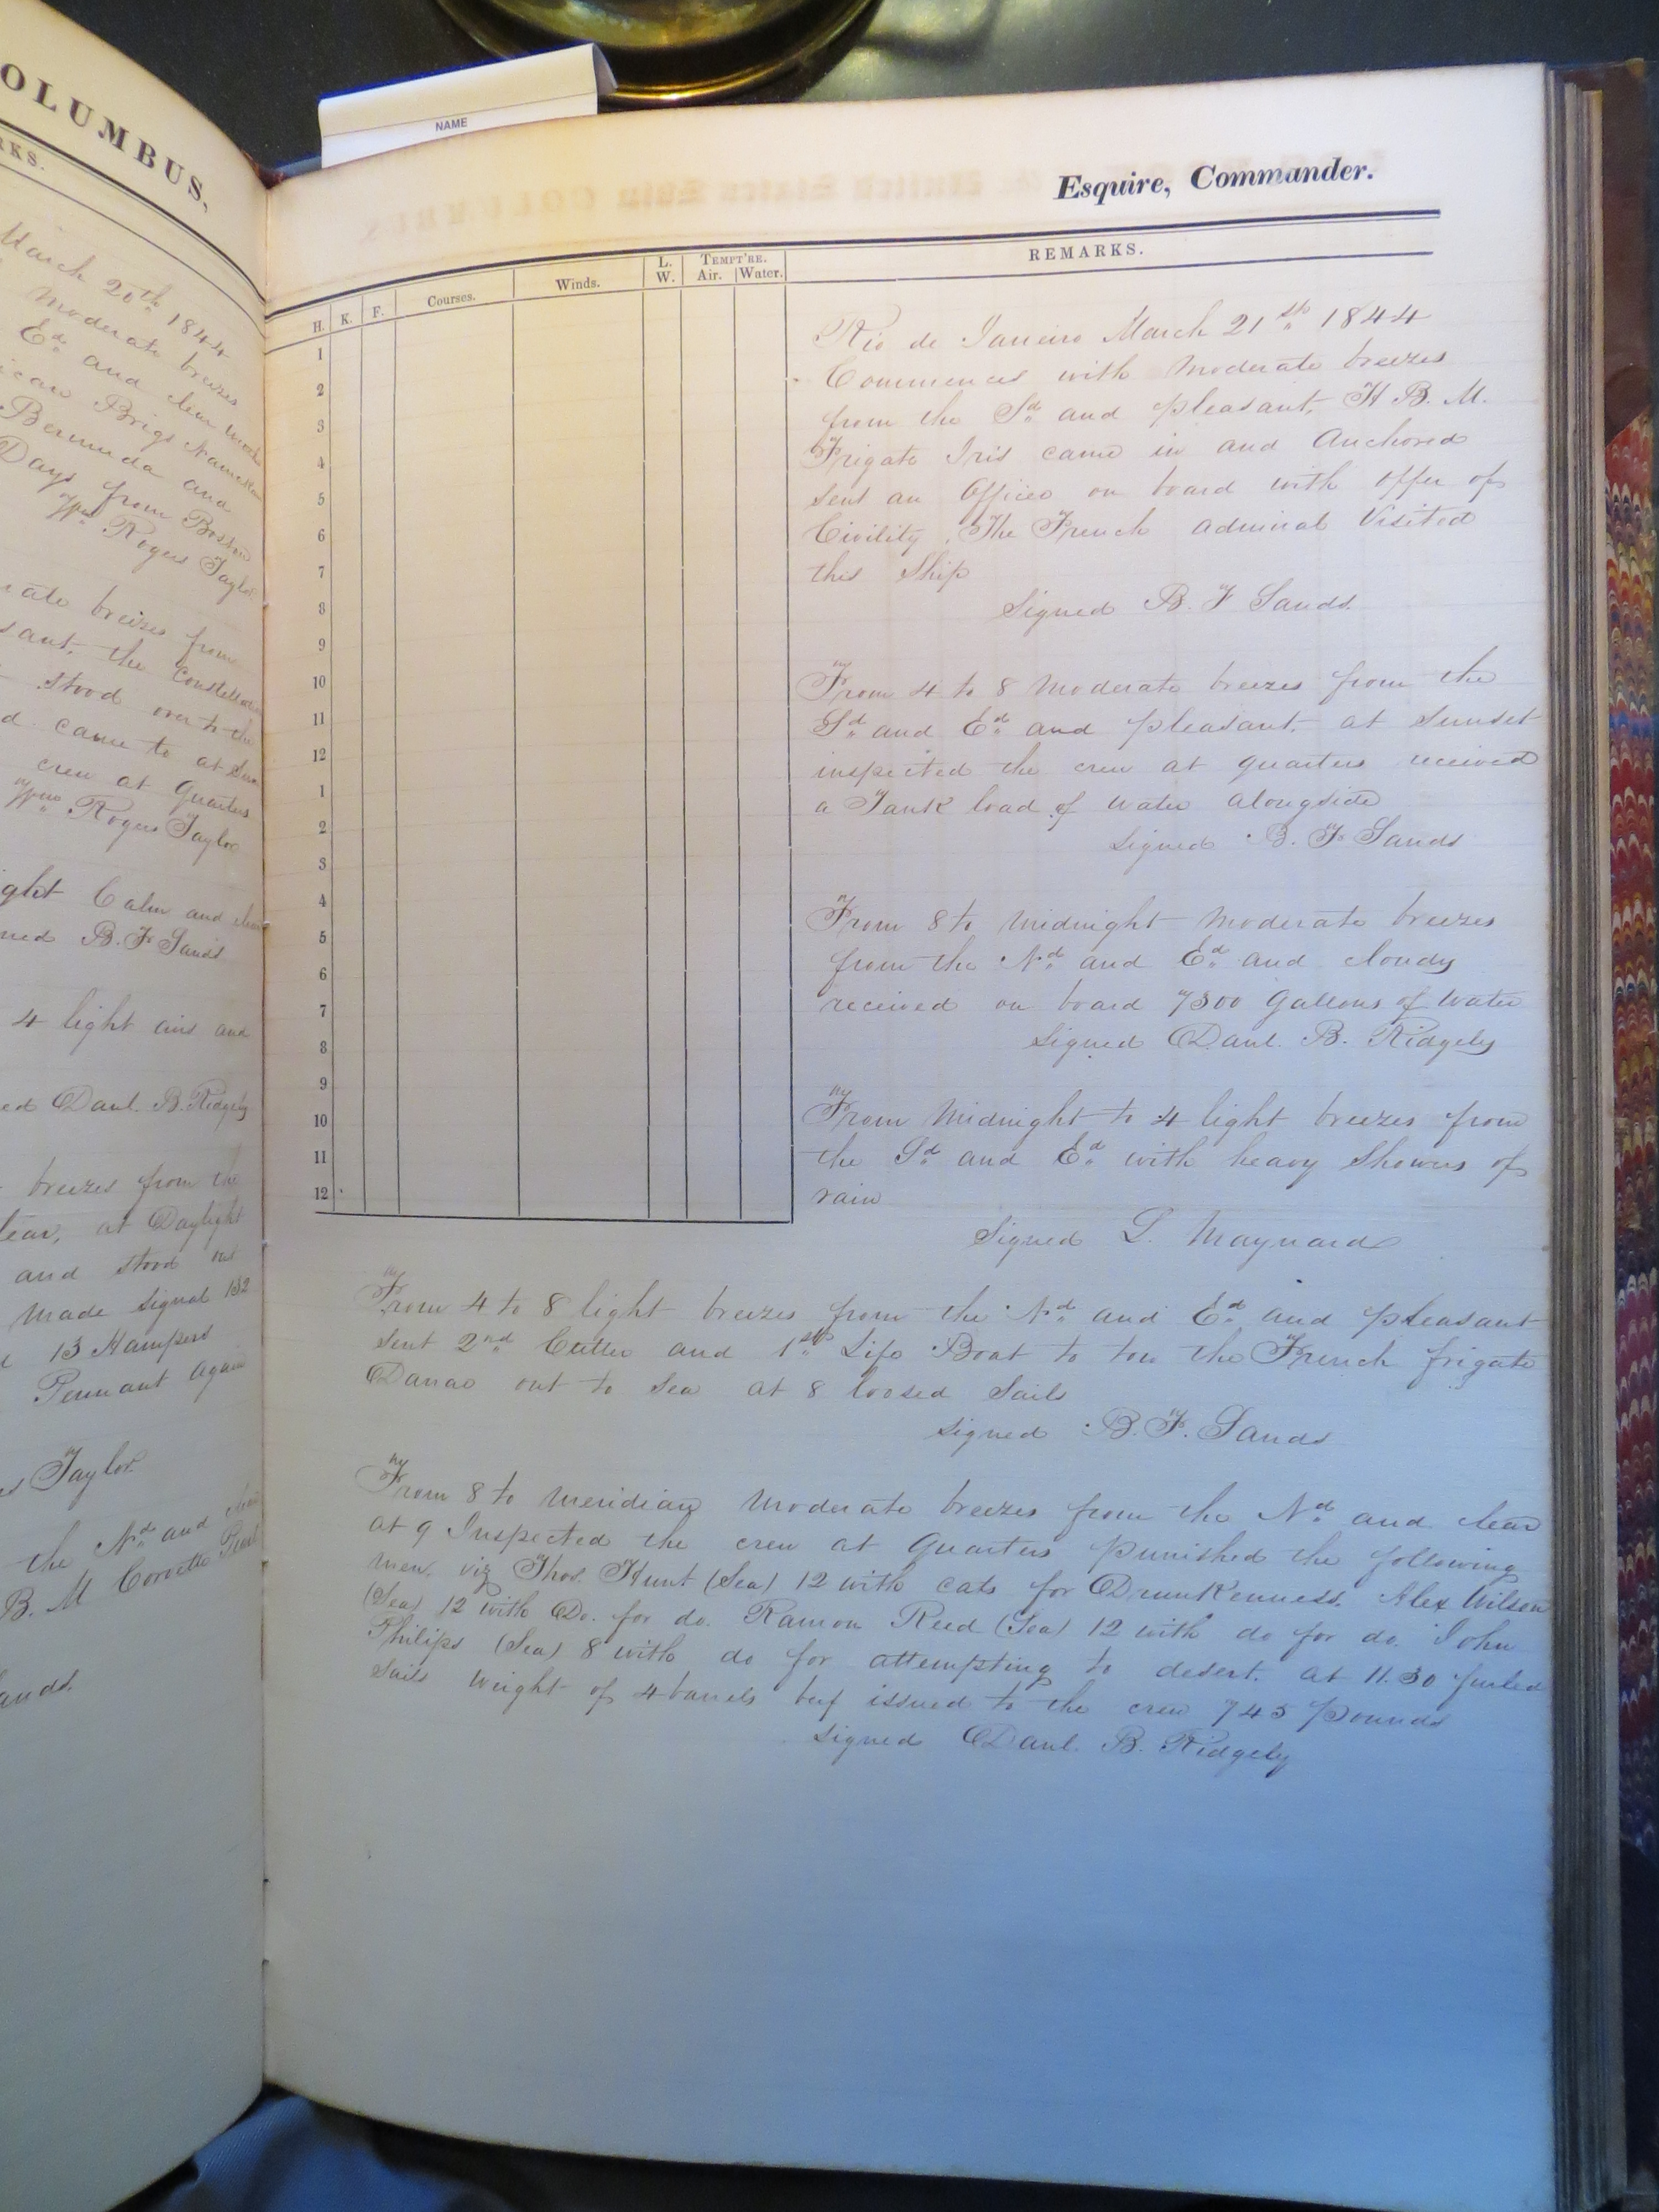 OLUMBUS,
RKS.
March 20th 1844
moderate breezes
Ed and clear
Brigs
Bermuda and
Days from Boston
Wm Rogers Taylor
rate breezes from
sant, the Constellation
stood over to the
d came to at
crew at Quarters
Wm Rogers Taylor
ght Calm and clear
ned B. F. Sands
4 light airs and
ed Danl. B. Ridgely
breezes from the
lear, at Daylight
and stood
made Signal 132
13 Hampers
Pennant again
s Taylor
the Nd and clear
B. M Corvette
ands.
NAME
Esquire, Commander.
H. K. F. Courses. Winds. L. W. TEMPT'RE. Air. Water. REMARKS.
1
2
3
4
5
6
7
8
9
10
11
12
1
2
3
4
5
6
7
8
9
10
11
12
Rio de Janeiro March 21st 1844
Commences with moderate breezes
from the Sd and pleasant, H B. M.
Frigate Iris came in and Anchored
sent an Officer on board with offer of
Civility. The French admiral Visited
this Ship
Signed B. F Sands.
From 4 to 8 moderate breezes from the
Sd and Ed and pleasant. at sunset
inspected the crew at quarters received
a Tank load of water alongside
Signed B. F. Sands
From 8 to midnight moderate breezes
from the Nd and Ed and cloudy
received on board 7300 Gallons of water
Signed Danl. B. Ridgely
From Midnight to 4 light breezes from
the Sd and Ed with heavy Showers of
rain
Signed L. Maynard
From 4 to 8 light breezes from the Nd and Ed and pleasant
sent 2nd Cutter and 1st Life Boat to tow the French frigate
Danae out to Sea at 8 loosed Sails
Signed B. F. Sands
From 8 to meridian moderate breezes from the Nd and clear
at 9 Inspected the crew at Quarters punished the following
men, viz Thos. Hunt (Sea) 12 with cats for Drunkenness. Alex Wilson
(Sea) 12 with Do. for do. Ramon Reed (Sea) 12 with do for do. John
Philips (Sea) 8 with do for attempting to desert. at 11.30 furled
Sails weight of 4 barrels beef issued to the crew 745 pounds
Signed Danl. B. Ridgely